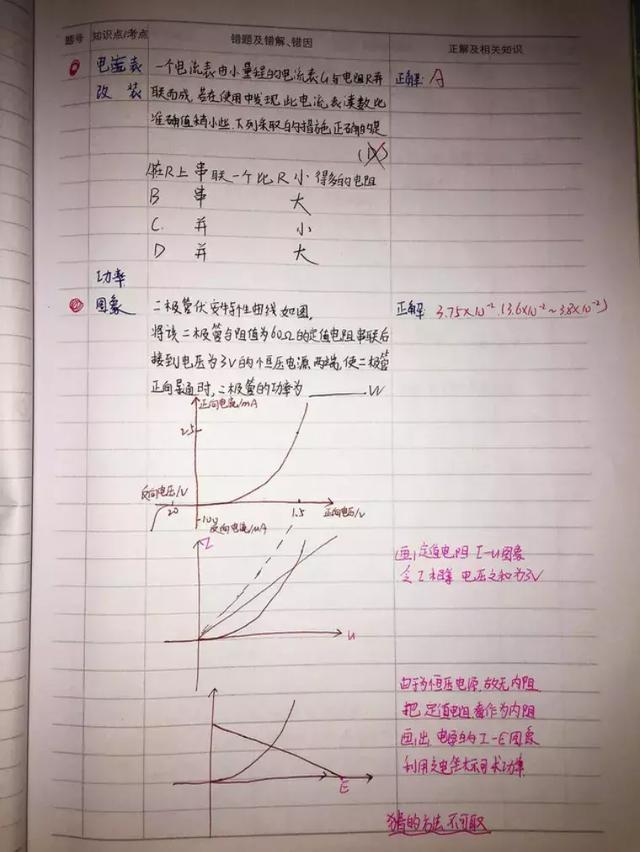 题号 知识点/考点 错题及错解、错因 正解及相关知识
电流表 一个电流表由小量程的电流表G与电阻R并 正解: A
改装 联而成,若在使用中发现此电流表读数比
准确值稍小些,下列采取的措施正确的是
(D)
A在R上串联一个比R小得多的电阻
B 串 大
C. 并 小
D 并 大
功率
图象 二极管伏安特性曲线如图, 正解: 3.75×10⁻² (3.6×10⁻²~3.8×10⁻²)
将该二极管与阻值为60Ω的定值电阻串联后
接到电压为3V的恒压电源两端,使二极管
正向导通时,二极管的功率为 W
正向电流/mA
25
反向电压/V
20 1.5 正向电压/V
-100
反向电流/μA
I
画定值电阻I-U图象
令I相等 电压之和为3V
U
由于为恒压电源,故无内阻
把定值电阻看作为内阻
画出电源的I-E图象
利用交点坐标可求功率
E
的方法不可取